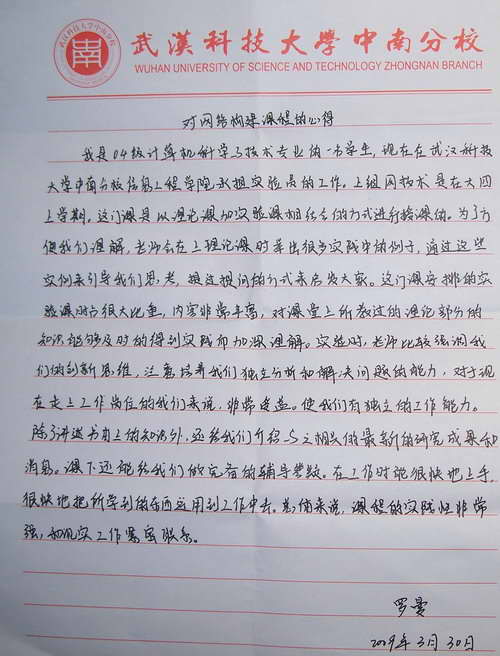 武漢科技大學中南分校
WUHAN UNIVERSITY OF SCIENCE AND TECHNOLOGY ZHONGNAN BRANCH
对网络构建课程的心得
我是04级计算机科学与技术专业的一名学生,现在在武汉科技
大学中南分校信息工程学院承担实验员的工作。上组网技术是在大四
上学期。这门课是以理论课加实验课相结合的方式进行授课的。为了方
便我们理解,老师会在上理论课时举出很多实践中的例子,通过这些
实例来引导我们思考,提过提问的方式来启发大家。这门课安排的实
验课时占很大比重,内容非常丰富,对课堂上所教过的理论部分的
知识能够及时的得到实践而加深理解。实验时,老师比较强调我
们的创新思维,注意培养我们独立分析和解决问题的能力,对于现
在走上工作岗位的我们来说,非常受益。使我们有独立的工作能力。
除了讲述书本上的知识外,还给我们介绍与之相关的最新的研究成果和
消息。课下还能给我们做完备的辅导答疑。在工作时能很快地上手,
很快地把所学到的东西运用到工作中去。总体来说,课程的实践性非常
强,和现实工作紧密联系。
罗曼
2009年3月30日